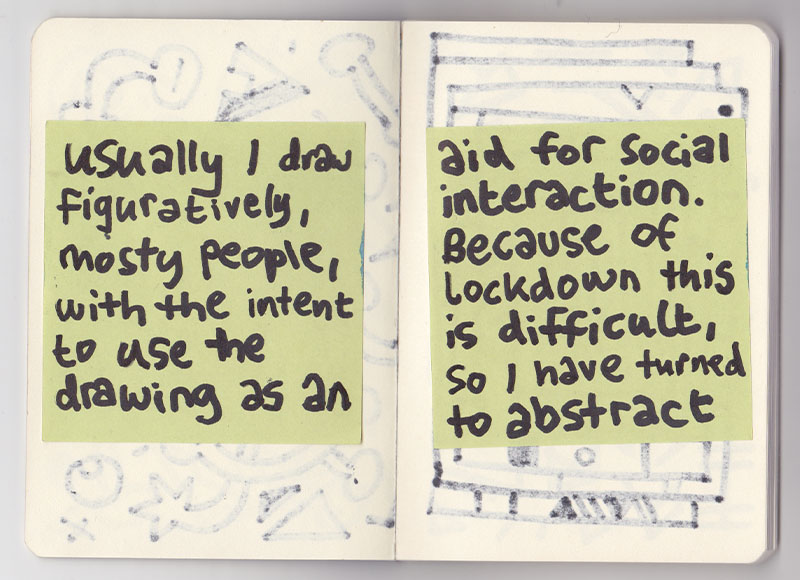 usually I draw
figuratively,
mosty people,
with the intent
to use the
drawing as an
aid for social
interaction.
Because of
lockdown this
is difficult,
so I have turned
to abstract